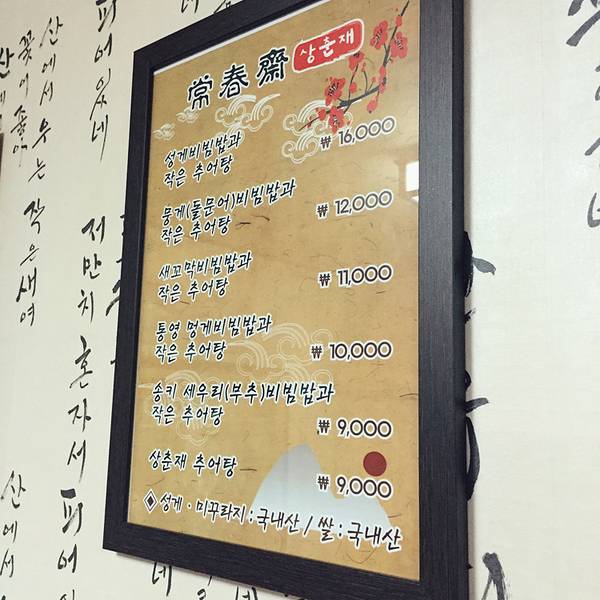 常春齋 상춘재
성게비빔밥과
작은 추어탕 ₩ 16,000
뭉게(돌문어)비빔밥과
작은 추어탕 ₩ 12,000
새꼬막비빔밥과
작은 추어탕 ₩ 11,000
통영 멍게비빔밥과
작은 추어탕 ₩ 10,000
송키 세우리(부추)비빔밥과
작은 추어탕 ₩ 9,000
상춘재 추어탕 ₩ 9,000
◈ 성게 · 미꾸라지 : 국내산 / 쌀 : 국내산
산에서 우는 작은 새여
꽃이 좋아
산에
피어있네
저만치 혼자서 피어
산에서
네